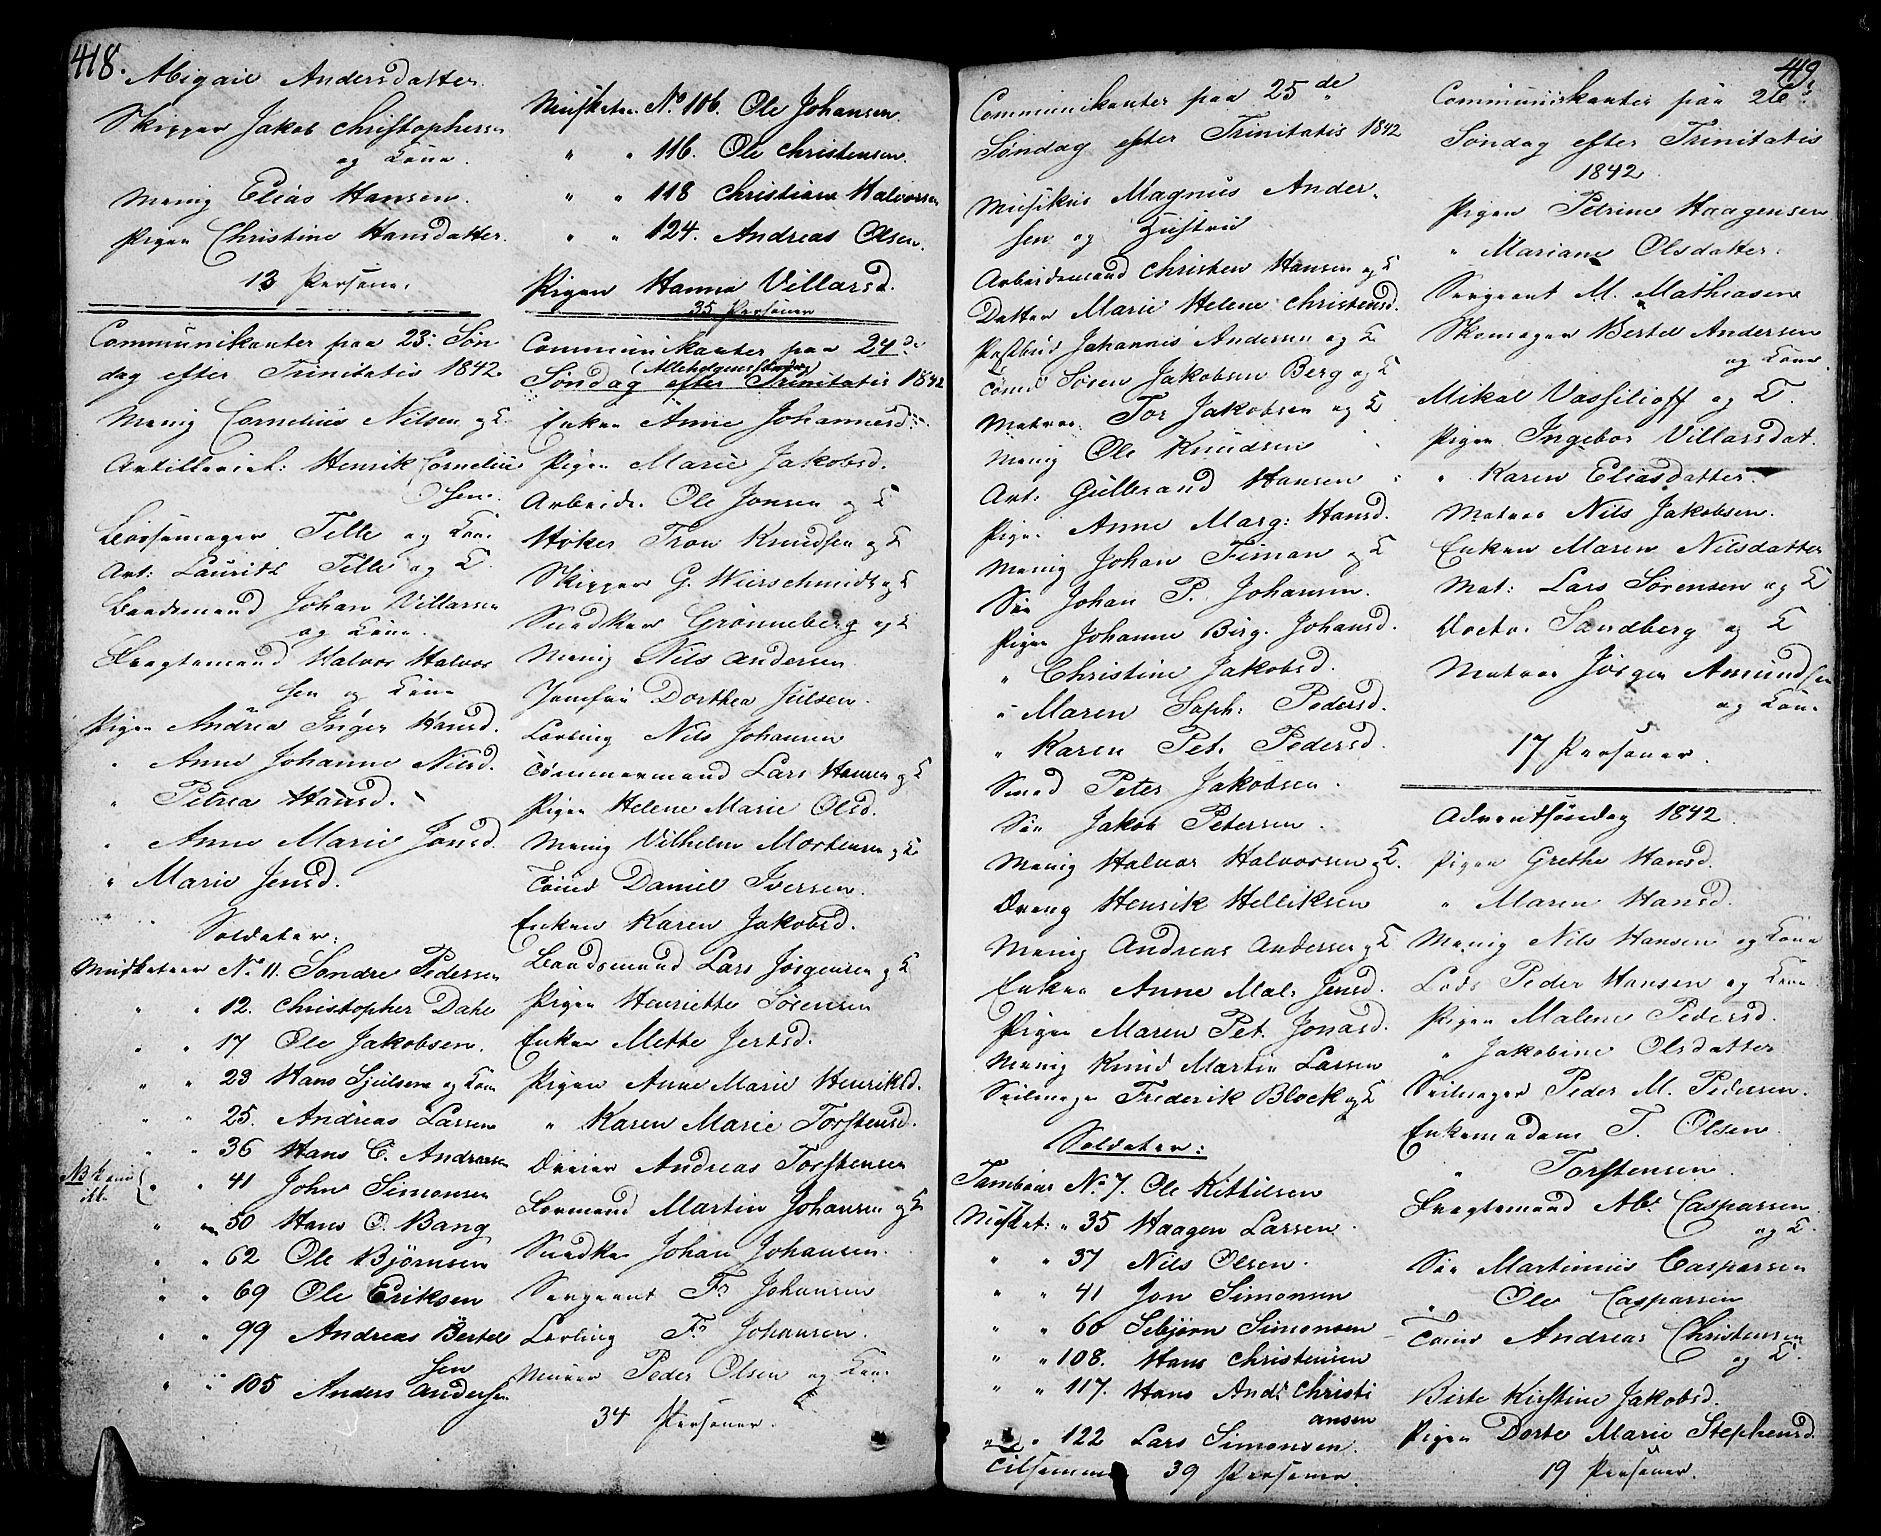 418.
Abigail Andersdatter
Skipper Jakob Christophersen
og Kone.
Menig Elias Hansen.
Pigen Christine Hansdatter.
13 Personer.
Communikanter paa 23: Søn
dag efter Trinitatis 1842.
Menig Cornelius Nilsen og K.
Artillerist: Henrik Cornelius
Olsen.
Børsemager Tille og Kone
Art: Lauritz Tille og K.
Baadsmand Johan Villarsen
og Kone.
Fragtemand Halvor Halvor
sen og Kone
Pigen Andrea Inger Hansd.
" Anne Johanne Nilsd.
" Petrea Hansd.
" Anne Marie Jonsd.
" Marie Jensd.
Soldater:
Musketeer No 11. Søndre Pedersen
" " 12. Christopher Dahl
" " 17 Ole Jakobsen.
" " 23 Hans Sjulsen og Kone
" " 25. Andreas Larsen
" " 36 Hans C. Andersen
" " 41 John Simonsen
" " 50 Hans O. Bang
" " 62 Ole Bjørnsen
" " 69 Ole Eriksen
" " 99 Andreas Bertel
sen
" " 105 Anders Andersen
Musketeer No 106. Ole Johansen
" " 116. Ole Christensen.
" " 118 Christian Halvorsen
" " 124. Andreas Olsen.
Pigen Hanna Villarsd.
35 Personer
Communikanter paa 24de
(Allehelgenssøndag)
Søndag efter Trinitatis 1842
Enken Anne Johannesd.
Pigen Marie Jakobsd.
Arbeids. Ole Jonsen og K
Høker Tron Knudsen og K
Skipper G. Wurschmidt og K
Snedker Grønneberg og K
Menig Nils Andersen
Jomfru Dorthea Julsen.
Lærling Nils Johansen
Tømmermand Lars Hansen og K
Pigen Helene Marie Olsd.
Menig Vilhelm Mortensen og K
Tømd Daniel Iversen.
Enken Karen Jakobsd.
Baadsmand Lars Jørgensen og K
Pigen Henriette Sørensen
Enken Mette Jertsd.
Pigen Anne Marie Henriksd.
" Karen Marie Torstensd.
Dreier Andreas Torstensen
Formand Martin Johansen og K
Snedker Johan Johansen.
Sergeant Fr Johansen
Lærling Fr Johansen.
Murer Peder Olsen og Kone
34 Personer.
419
Communikanter paa 25de
Søndag efter Trinitatis 1842
Musikus Magnus Ander-
sen og Hustru
Arbeidsmand Christen Hansen og K
Datter Marie Helene Christensd.
Postbud Johannes Andersen og K
Tømd Søren Jakobsen Berg og K
Matros Tor Jakobsen og K
Menig Ole Knudsen
Art: Gulbrand Hansen
Pigen Anne Marg: Hansd.
Menig Johan Timan og K
Søn Johan P. Johansen.
Pigen Johanne Birg. Johansd.
" Christine Jakobsd.
" Maren Soph: Pedersd.
" Karen Pet. Pedersd.
Smed Peter Jakobsen.
Søn Jakob Petersen.
Menig Halvor Halvorsen og K.
Dreng Henrik Helliksen
Menig Andreas Andersen og K
Enken Anne Mal: Jensd.
Pigen Maren Pet. Jonasd.
Menig Knud Martin Larsen
Seilmager Frederik Block og K
Soldater:
Tambour No 7. Ole Kittilsen
Musket: " 35 Haagen Larsen.
" " 37 Nils Olsen.
" " 41 Jon Simonsen
" " 60 Sebjørn Simonsen
" " 108. Hans Christensen
" " 117. Hans And: Christi
ansen
" " 122 Lars Simonsen.
Tilsammen 39 Personer.
Communikanter paa 26de
Søndag efter Trinitatis
1842.
Pigen Petrine Haagensen
" Mariane Olsdatter.
Sergeant M. Mathiasen
Skomager Bertel Andersen
og Kone
Mikal Vassilioff og K.
Pigen Ingebor Villarsdat.
" Karen Eliasdatter.
Matros Nils Jakobsen.
Enken Maren Nilsdatter
Mat: Lars Sørensen og K
Doctor Sandberg og K
Matros Jørgen Amundsen
og Kone
17 Personer.
Adventsøndag 1842.
Pigen Grethe Hansd.
" Maren Hansd.
Menig Nils Hansen og Kone
Lods Peder Hansen og Kone
Pigen Malene Pedersd.
" Jakobine Olsdatter
Seilmager Peder M. Pedersen.
Enkemadam T. Olsen
" Torstensen.
Fragtemand Ab. Caspersen
og K.
Søn Martinius Caspersen
" Ole Caspersen
Tømd Andreas Christensen
og K.
Birte Kirstine Jakobsd.
Pigen Dorte Marie Stephensd.
19 Personer.